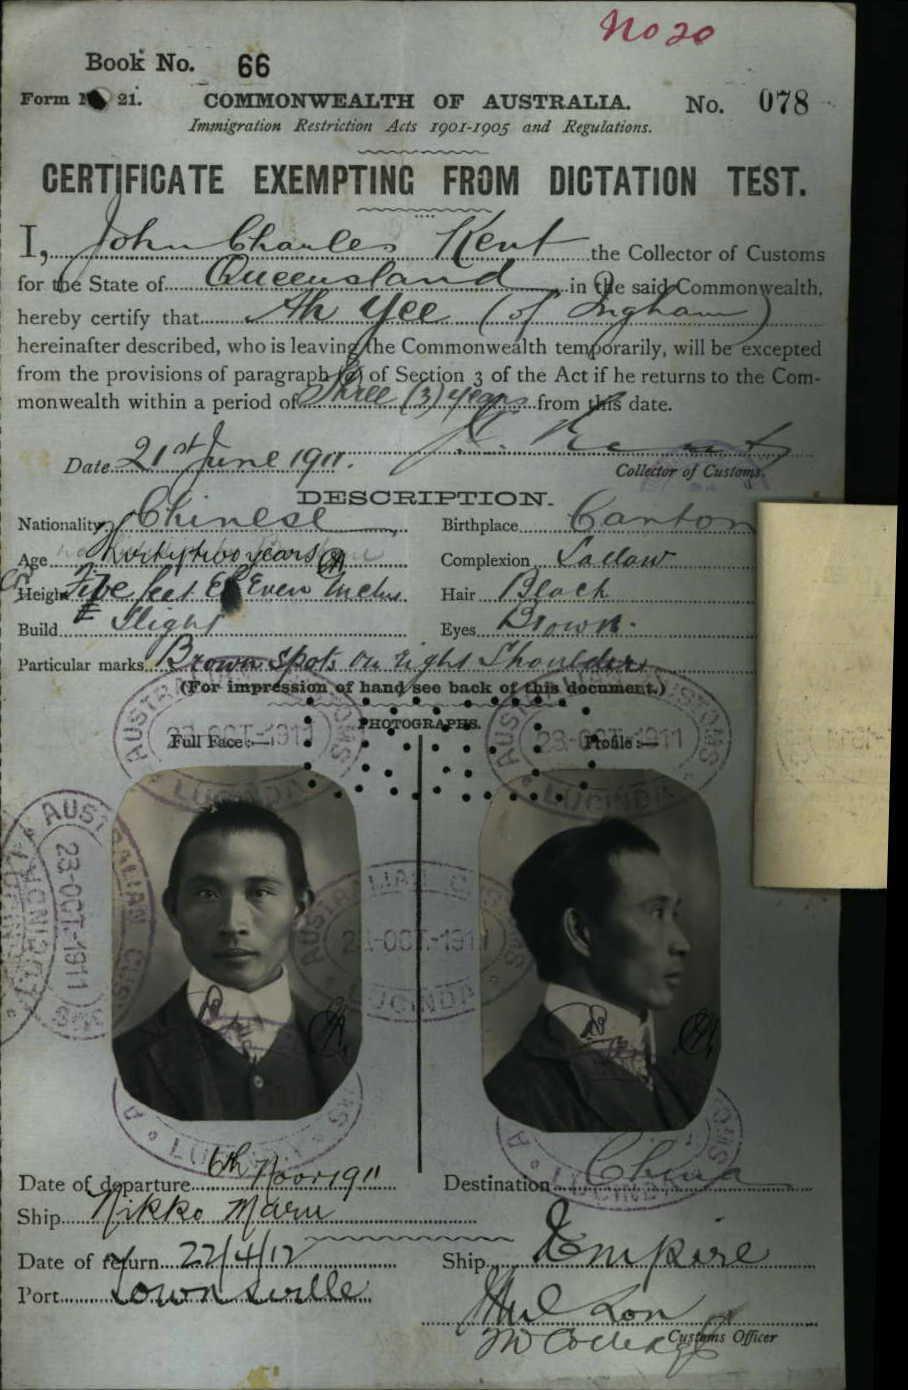 No 20
Book No. 66
Form No 21. COMMONWEALTH OF AUSTRALIA. No. 078
Immigration Restriction Acts 1901-1905 and Regulations.
CERTIFICATE EXEMPTING FROM DICTATION TEST.
I, John Charles Kent the Collector of Customs
for the State of Queensland in the said Commonwealth,
hereby certify that Ah Yee (of Ingham)
hereinafter described, who is leaving the Commonwealth temporarily, will be excepted
from the provisions of paragraph (a) of Section 3 of the Act if he returns to the Com-
monwealth within a period of Three (3) years from this date.
Date 21st June 1911.
Collector of Customs.
DESCRIPTION.
Nationality Chinese Birthplace Canton
Age thirty two years Complexion Sallow
Height Five feet Eleven Inches Hair Black
Build Slight Eyes Brown.
Particular marks Brown spots on right Shoulder
(For impression of hand see back of this document.)
PHOTOGRAPHS.
Full Face:— Profile:—
AUSTRALIAN CUSTOMS 23-OCT.-1911 LUCINDA
AUSTRALIAN CUSTOMS 23-OCT.-1911 LUCINDA
AUSTRALIAN CUSTOMS 23-OCT.-1911 LUCINDA
AUSTRALIAN CUSTOMS 23-OCT.-1911 LUCINDA
Date of departure 6th Nov 1911 Destination China
Ship Nikko Maru
Date of return 22/4/12 Ship Empire
Port Townsville
Customs Officer